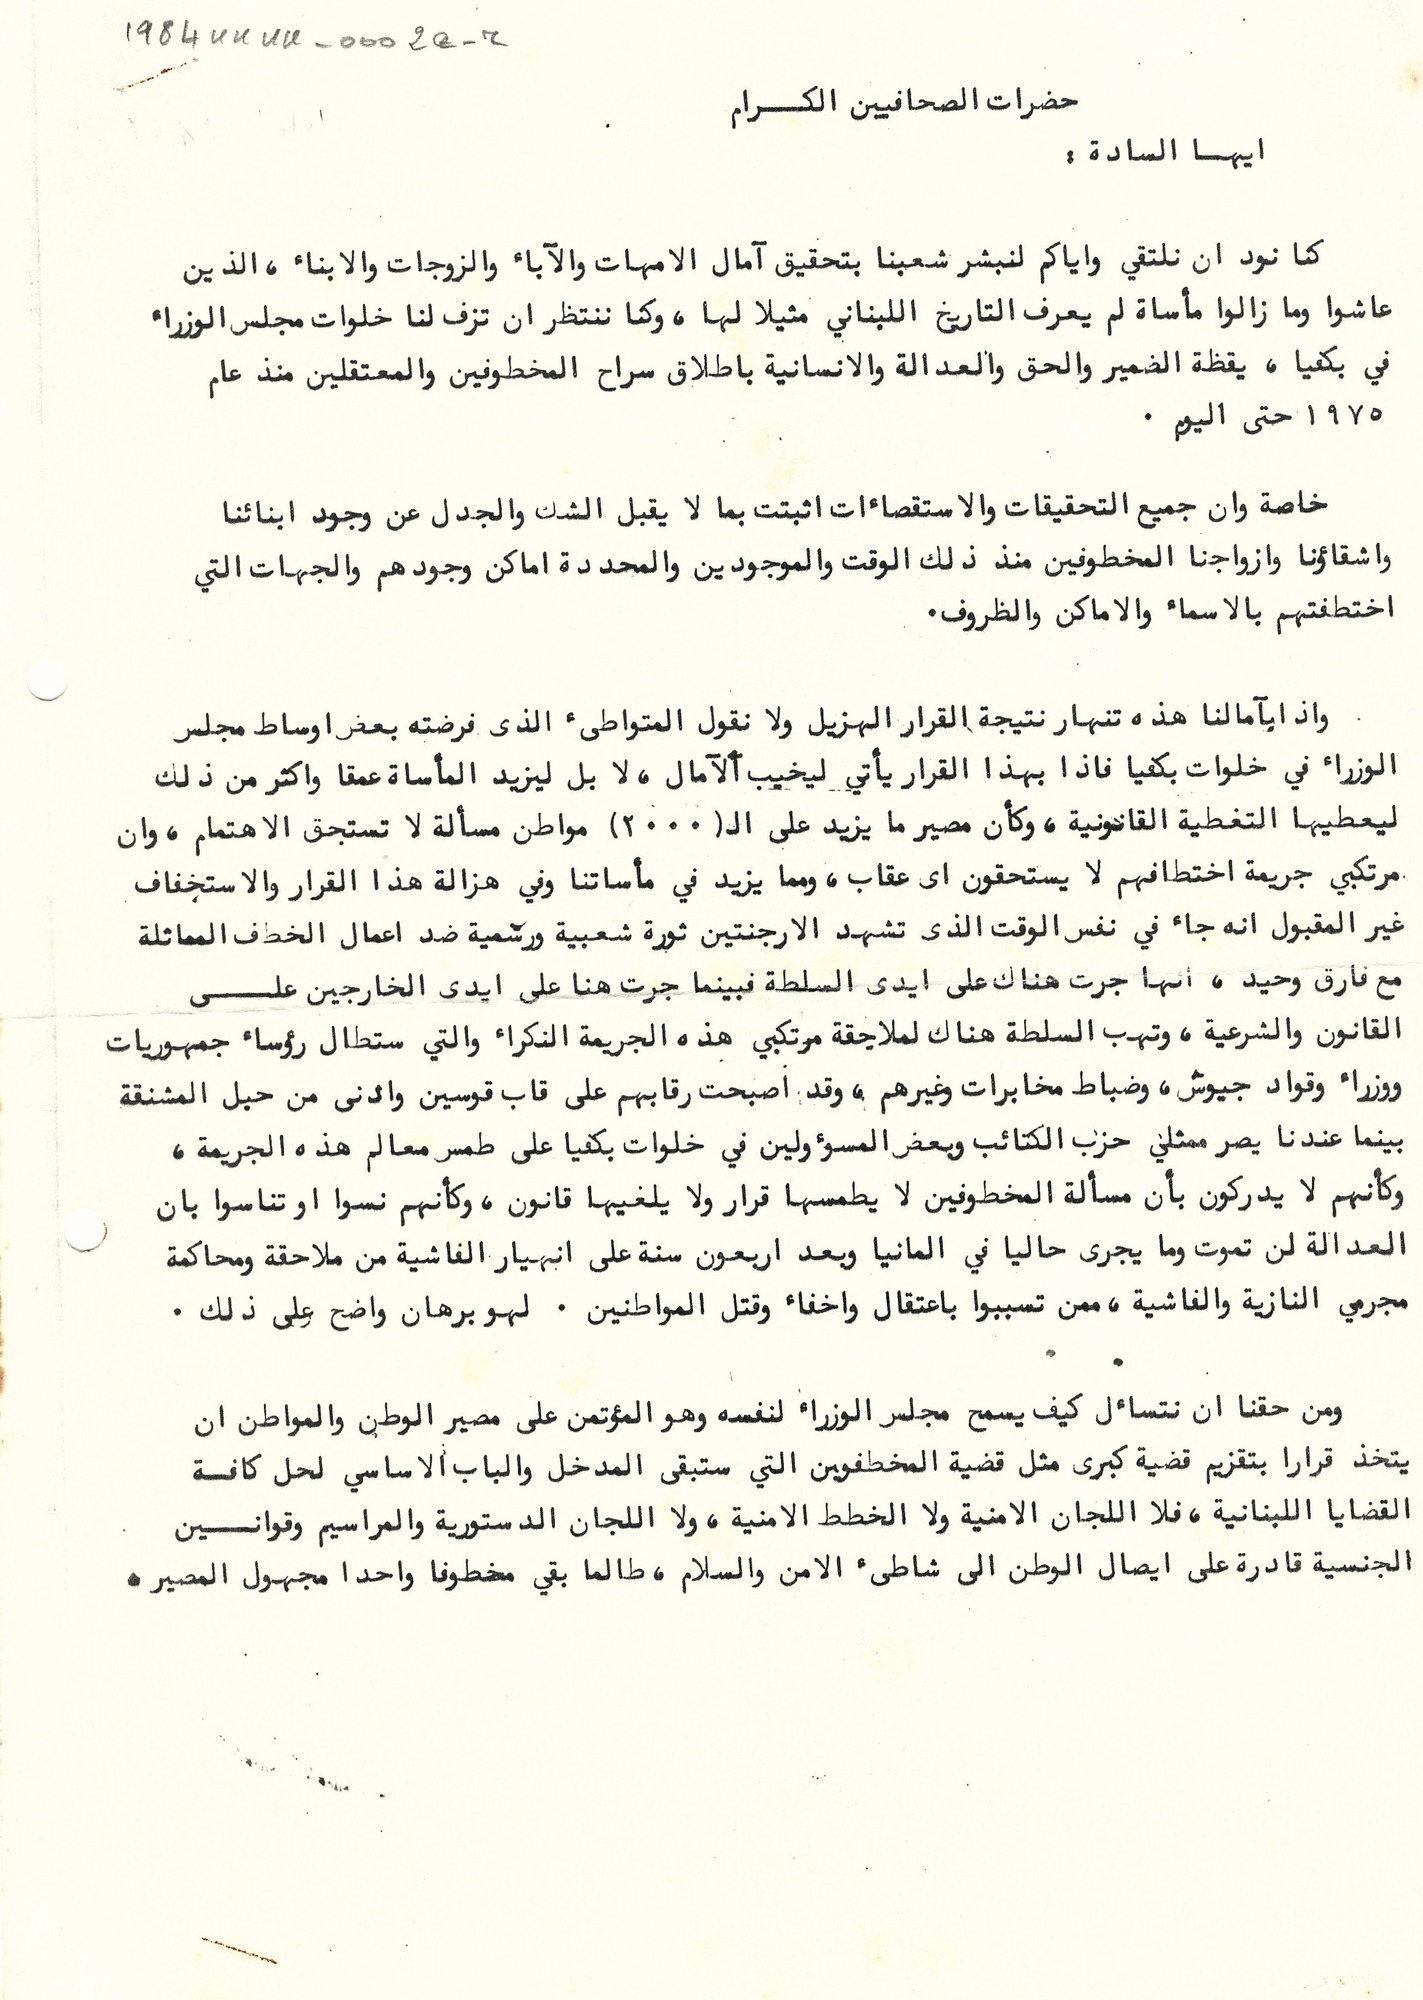 حضرات الصحافيين الكـــرام
ايهـا السادة :
كنا نود ان نلتقي واياكم لنبشر شعبنا بتحقيق آمال الامهات والآباء والزوجات والابناء ، الذين
عاشوا وما زالوا مأساة لم يعرف التاريخ اللبناني مثيلا لها ، وكنا ننتظر ان تزف لنا خلوات مجلس الوزراء
في بكفيا ، يقظة الضمير والحق والعدالة والانسانية باطلاق سراح المخطوفين والمعتقلين منذ عام
١٩٧٥ حتى اليوم ٠
خاصة وان جميع التحقيقات والاستقصاءات اثبتت بما لا يقبل الشك والجدل عن وجود ابنائنا
واشقاؤنا وازواجنا المخطوفين منذ ذلك الوقت والموجودين والمحددة اماكن وجودهم والجهات التي
اختطفتهم بالاسماء والاماكن والظروف٠
واذا بآمالنا هذه تنهار نتيجة القرار الهزيل ولا نقول المتواطىء الذى فرضته بعض اوساط مجلس
الوزراء في خلوات بكفيا فاذا بهذا القرار يأتي ليخيب الآمال ، لا بل ليزيد المأساة عمقا واكثر من ذلك
ليعطيها التغطية القانونية ، وكأن مصير ما يزيد على الـ(٢٠٠٠) مواطن مسألة لا تستحق الاهتمام ، وان
مرتكبي جريمة اختطافهم لا يستحقون اى عقاب ، ومما يزيد في مأساتنا وفي هزالة هذا القرار والاستخفاف
غير المقبول انه جاء في نفس الوقت الذى تشهد الارجنتين ثورة شعبية ورسمية ضد اعمال الخطف المماثلة
مع فارق وحيد ، انها جرت هناك على ايدى السلطة فبينما جرت هنا على ايدى الخارجين علـــى
القانون والشرعية ، وتهب السلطة هناك لملاحقة مرتكبي هذه الجريمة النكراء والتي ستطال رؤساء جمهوريات
ووزراء وقواد جيوش ، وضباط مخابرات وغيرهم ، وقد اصبحت رقابهم على قاب قوسين وادنى من حبل المشنقة
بينما عندنا يصر ممثلي حزب الكتائب وبعض المسوءولين في خلوات بكفيا على طمس معالم هذه الجريمة ،
وكأنهم لا يدركون بأن مسألة المخطوفين لا يطمسها قرار ولا يلغيها قانون ، وكأنهم نسوا او تناسوا بان
العدالة لن تموت وما يجرى حاليا في المانيا وبعد اربعون سنة على انهيار الفاشية من ملاحقة ومحاكمة
مجرمي النازية والفاشية ، ممن تسببوا باعتقال واخفاء وقتل المواطنين ٠ لهو برهان واضح على ذلك ٠
ومن حقنا ان نتساءل كيف يسمح مجلس الوزراء لنفسه وهو المؤتمن على مصير الوطن والمواطن ان
يتخذ قرارا بتقزيم قضية كبرى مثل قضية المخطفوين التي ستبقى المدخل والباب الاساسي لحل كافـة
القضايا اللبنانية ، فلا اللجان الامنية ولا الخطط الامنية ، ولا اللجان الدستورية والمراسيم وقوانـــين
الجنسية قادرة على ايصال الوطن الى شاطىء الامن والسلام ، طالما بقي مخطوفا واحدا مجهول المصير ٠